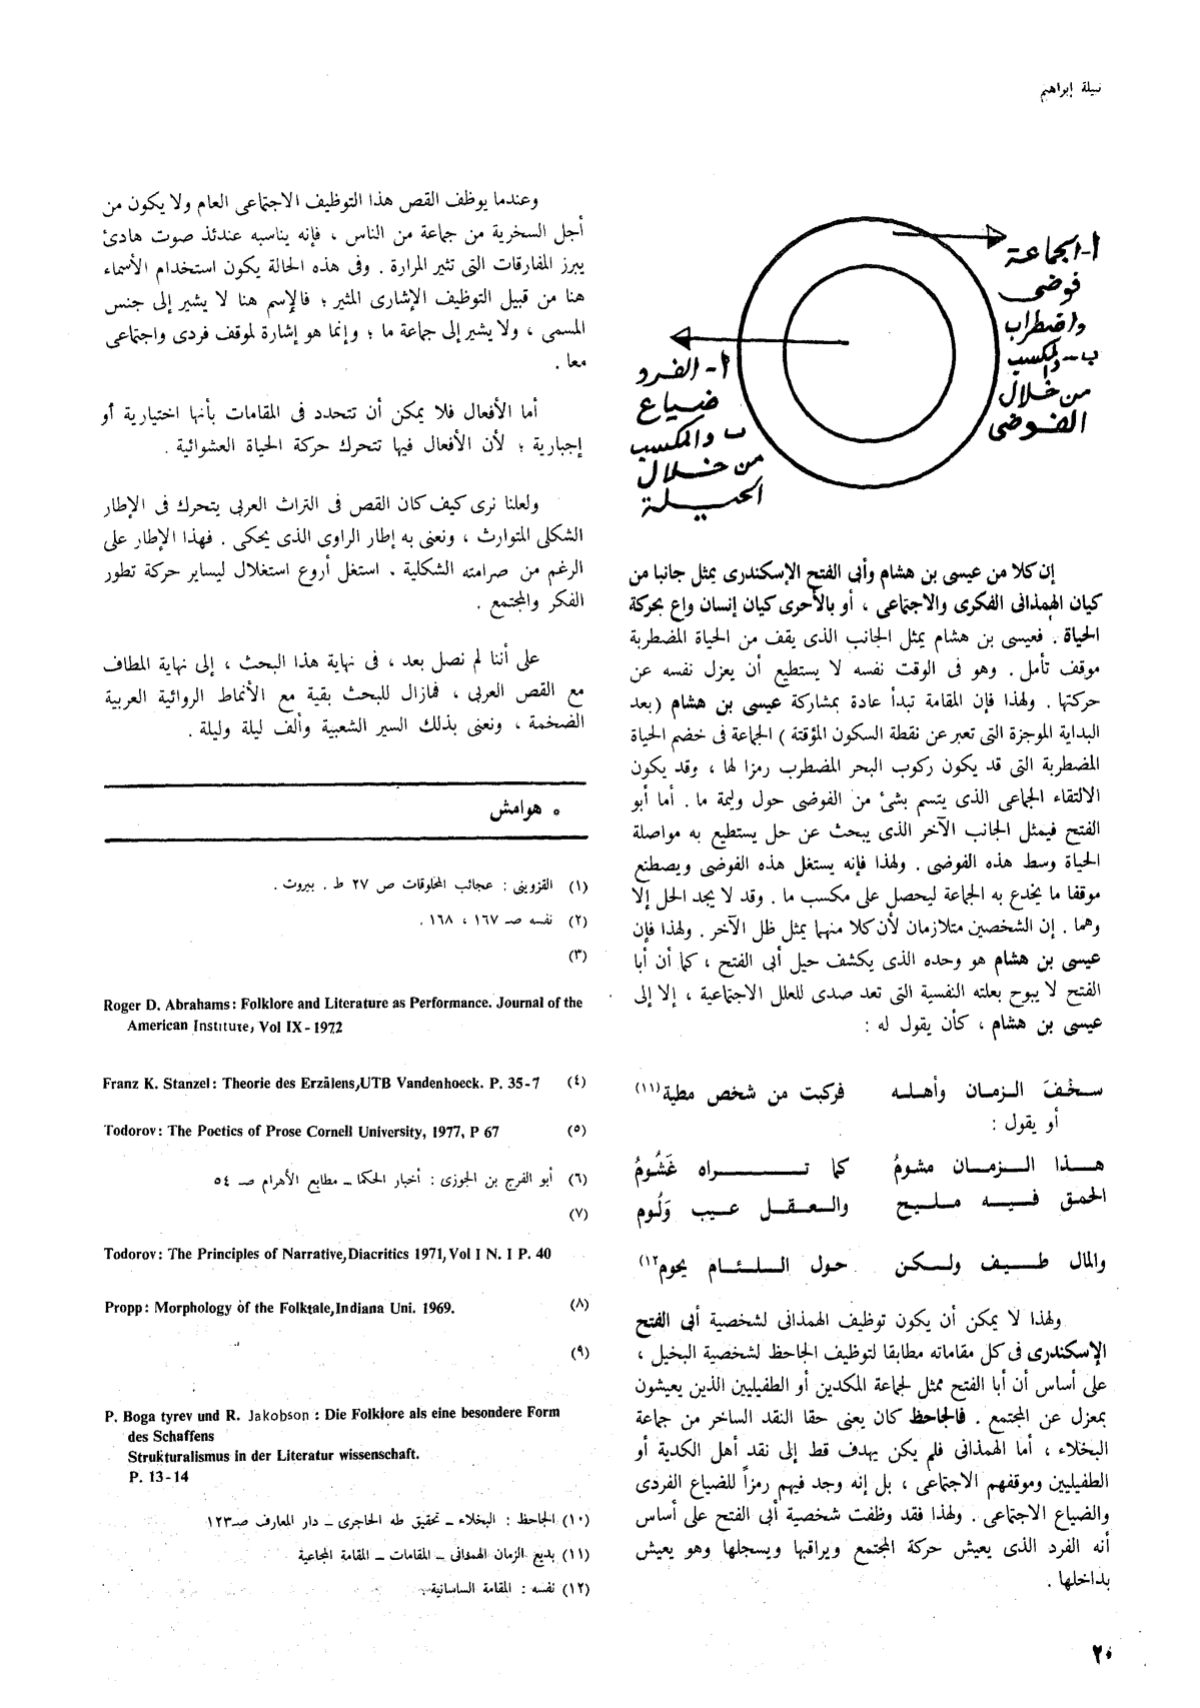 نبيلة إبراهيم
أ-الجماعة
فوضى
واضطراب
ب-والمكسب
من خلال
الفوضى
أ-الفرد
ضياع
ب والمكسب
من خلال
الحيلة
إن كلا من عيسى بن هشام وأبى الفتح الإسكندرى يمثل جانبا من
كيان الهمذانى الفكرى والاجتماعى ، أو بالأحرى كيان إنسان واع بحركة
الحياة . فعيسى بن هشام يمثل الجانب الذى يقف من الحياة المضطربة
موقف تأمل . وهو فى الوقت نفسه لا يستطيع أن يعزل نفسه عن
حركتها . ولهذا فإن المقامة تبدأ عادة بمشاركة عيسى بن هشام (بعد
البداية الموجزة التى تعبر عن نقطة السكون المؤقتة ) الجماعة فى خضم الحياة
المضطربة التى قد يكون ركوب البحر المضطرب رمزا لها ، وقد يكون
الالتقاء الجماعى الذى يتسم بشئ من الفوضى حول وليمة ما . أما أبو
الفتح فيمثل الجانب الآخر الذى يبحث عن حل يستطيع به مواصلة
الحياة وسط هذه الفوضى . ولهذا فإنه يستغل هذه الفوضى ويصطنع
موقفا ما يخدع به الجماعة ليحصل على مكسب ما . وقد لا يجد الحل إلا
وهما . إن الشخصين متلازمان لأن كلا منهما يمثل ظل الآخر . ولهذا فإن
عيسى بن هشام هو وحده الذى يكشف حيل أبى الفتح ، كما أن أبا
الفتح لا يبوح بعلته النفسية التى تعد صدى للعلل الاجتماعية ، إلا إلى
عيسى بن هشام ، كأن يقول له :
سخُفَ الزمان وأهله فركبت من شخص مطية(١١)
أو يقول :
هذا الزمان مشومُ كما تراه غَشُومُ
الحمق فيه مليح والعقل عيب وَلُوم
والمال طيف ولكن حول اللئام يحوم١٢)
ولهذا لا يمكن أن يكون توظيف الهمذانى لشخصية أبى الفتح
الإسكندرى فى كل مقاماته مطابقا لتوظيف الجاحظ لشخصية البخيل ،
على أساس أن أبا الفتح ممثل لجماعة المكدين أو الطفيليين الذين يعيشون
بمعزل عن المجتمع . فالجاحظ كان يعنى حقا النقد الساخر من جماعة
البخلاء ، أما الهمذانى فلم يكن يهدف قط إلى نقد أهل الكدية أو
الطفيليين وموقفهم الاجتماعى ، بل إنه وجد فيهم رمزاً للضياع الفردى
والضياع الاجتماعى . ولهذا فقد وظفت شخصية أبى الفتح على أساس
أنه الفرد الذى يعيش حركة المجتمع ويراقبها ويسجلها وهو يعيش
بداخلها .
وعندما يوظف القص هذا التوظيف الاجتماعى العام ولا يكون من
أجل السخرية من جماعة من الناس ، فإنه يناسبه عندئذ صوت هادئ
يبرز المفارقات التى تثير المرارة . وفى هذه الحالة يكون استخدام الأسماء
هنا من قبيل التوظيف الإشارى المثير ؛ فالإسم هنا لا يشير إلى جنس
المسمى ، ولا يشير إلى جماعة ما ؛ وإنما هو إشارة لموقف فردى واجتماعى
معا .
أما الأفعال فلا يمكن أن تتحدد فى المقامات بأنها اختيارية أو
إجبارية ؛ لأن الأفعال فيها تتحرك حركة الحياة العشوائية .
ولعلنا نرى كيف كان القص فى التراث العربى يتحرك فى الإطار
الشكلى المتوارث ، ونعنى به إطار الراوى الذى يحكى . فهذا الإطار على
الرغم من صرامته الشكلية . استغل أروع استغلال ليساير حركة تطور
الفكر والمجتمع .
على أننا لم نصل بعد ، فى نهاية هذا البحث ، إلى نهاية المطاف
مع القص العربى ، فمازال للبحث بقية مع الأنماط الروائية العربية
الضخمة ، ونعنى بذلك السير الشعبية وألف ليلة وليلة .
• هوامش
(١) القزوينى : عجائب المخلوقات ص ٢٧ ط . بيروت .
(٢) نفسه صـ ١٦٧ ، ١٦٨ .
(٣)
Roger D. Abrahams: Folklore and Literature as Performance. Journal of the
American Institute, Vol IX - 1972
Franz K. Stanzel: Theorie des Erzälens,UTB Vandenhoeck. P. 35-7 (٤)
Todorov: The Poetics of Prose Cornell University, 1977, P 67 (٥)
(٦) أبو الفرج بن الجوزى : أخبار الحكما ــ مطابع الأهرام صـ ٥٤
(٧)
Todorov: The Principles of Narrative,Diacritics 1971, Vol I N. I P. 40
Propp: Morphology of the Folktale,Indiana Uni. 1969. (٨)
(٩)
P. Boga tyrev und R. Jakobson : Die Folklore als eine besondere Form
des Schaffens
Strukturalismus in der Literatur wissenschaft.
P. 13-14
(١٠) الجاحظ : البخلاء ــ تحقيق طه الحاجرى ــ دار المعارف صـ١٢٣
(١١) بديع الزمان الهمذانى ــ المقامات ــ المقامة المجاعية
(١٢) نفسه : المقامة الساسانية .
٢٠